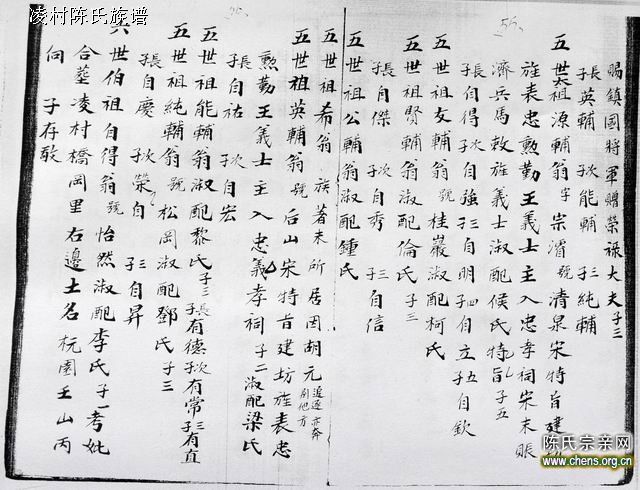 凌村陈氏族谱
56
賜鎮國將軍贈榮祿大夫子三
長英輔 子次能輔 子三純輔
五世太祖源輔翁字宗濆號清泉宋特旨建坊
旌表忠勲勤王義士主入忠孝祠宋末賬
濟兵馬敕旌義士淑配侯氏特旨子五
長自得子次自強子三自明子四自立子五自欽
五世祖友輔翁號桂巖淑配柯氏
五世祖賢輔翁淑配倫氏子三
長自傑 子次自秀 子三自信
五世祖公輔翁淑配鍾氏
五世祖希翁族著末所居因胡元追逐亦奔別他方
五世祖英輔翁號后山宋特旨建坊旌表忠
勲勤王義士主入忠義孝祠子二淑配梁氏
長自祐 次自宏
五世祖能輔翁淑配黎氏子三長有德子次有常子三有直
五世祖純輔翁號松岡淑配鄧氏子三
長自慶 子次榮自 子三自昇
六世伯祖自得翁號怡然淑配李氏子一考妣
合塟凌村橋岡里右邊土名杬園王山丙
向 子存敬
陈氏宗亲网
www.chens.org.cn